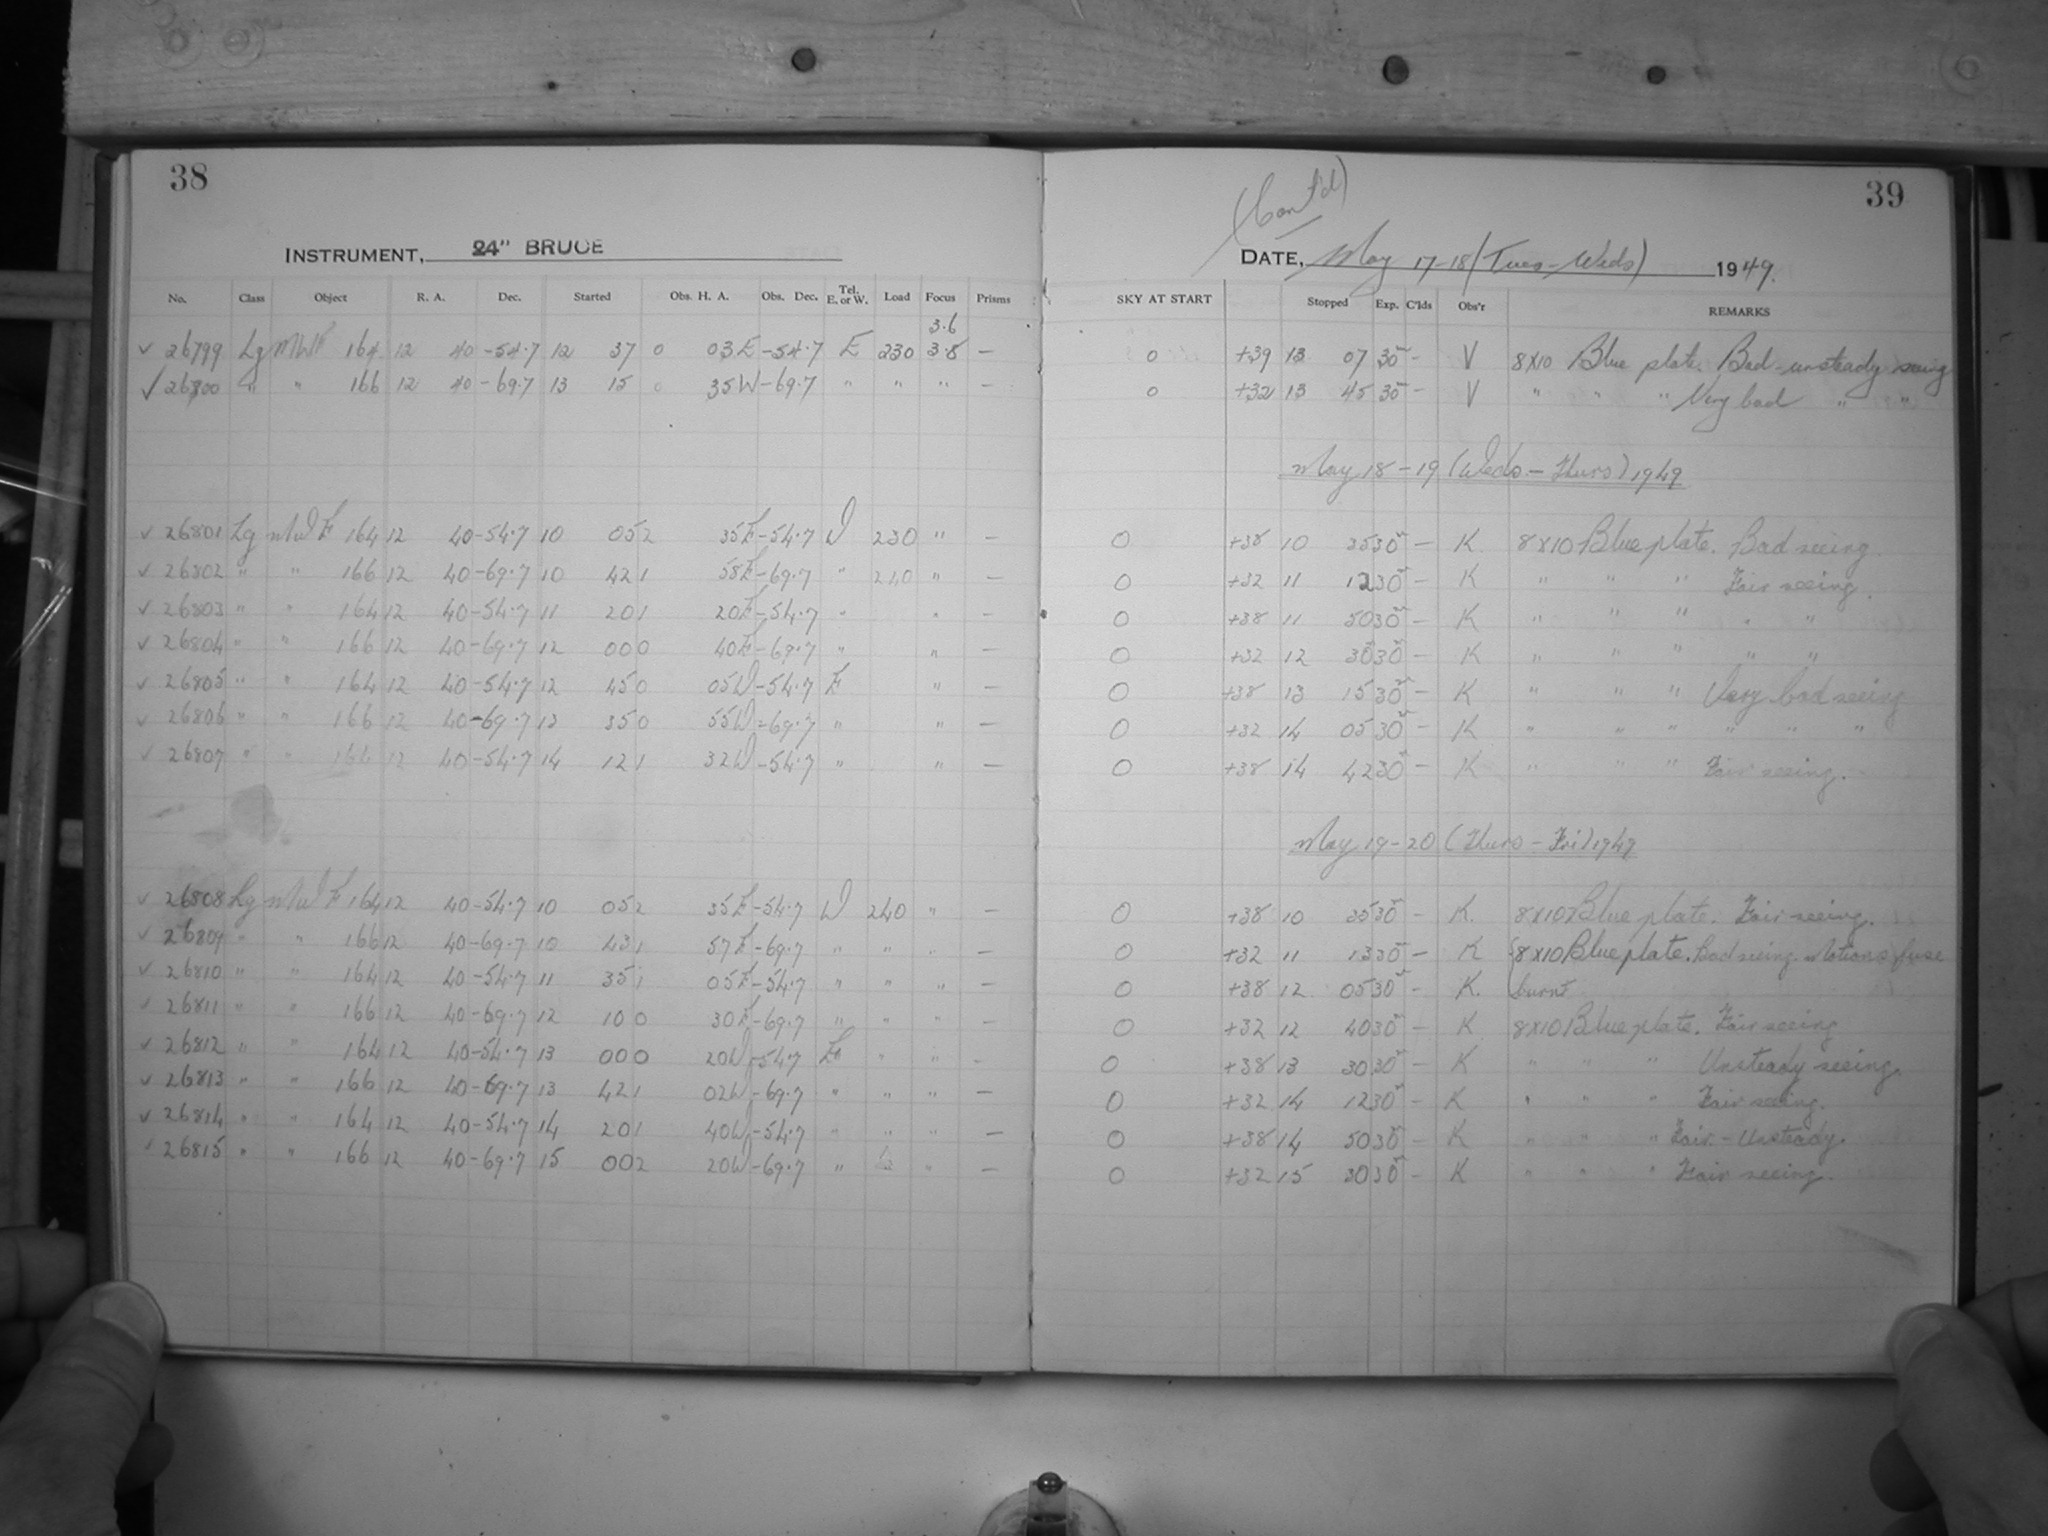 38
INSTRUMENT, 24" BRUCE
No. Class Object R. A. Dec. Started Obs. H. A. Obs. Dec. Tel. E. or W. Load Focus Prisms
3.6
✓ 26799 Lg MWF 164 12 40 -54.7 12 37 0 03E -54.7 E 230 3.8 —
✓ 26800 " " 166 12 40 -69.7 13 15 0 35W -69.7 " " " —
✓ 26801 Lg MWF 164 12 40 -54.7 10 05 2 35E -54.7 W 230 "
✓ 26802 " " 166 12 40 -69.7 10 42 1 58E -69.7 " 240 " —
✓ 26803 " " 164 12 40 -54.7 11 20 1 20E -54.7 " " —
✓ 26804 " " 166 12 40 -69.7 12 00 0 40E -69.7 " " —
✓ 26805 " " 164 12 40 -54.7 12 45 0 05W -54.7 E " —
✓ 26806 " " 166 12 40 -69.7 13 35 0 55W -69.7 " " —
✓ 26807 " " 164 12 40 -54.7 14 12 1 32W -54.7 " " —
✓ 26808 Lg MWF 164 12 40 -54.7 10 05 2 35E -54.7 W 240 " —
✓ 26809 " " 166 12 40 -69.7 10 43 1 57E -69.7 " " " —
✓ 26810 " " 164 12 40 -54.7 11 35 1 05E -54.7 " " " —
✓ 26811 " " 166 12 40 -69.7 12 10 0 30E -69.7 " " " —
✓ 26812 " " 164 12 40 -54.7 13 00 0 20W -54.7 E " " —
✓ 26813 " " 166 12 40 -69.7 13 42 1 02W -69.7 " " " —
✓ 26814 " " 164 12 40 -54.7 14 20 1 40W -54.7 " " " —
✓ 26815 " " 166 12 40 -69.7 15 00 2 20W -69.7 " " —
39
(Cont'd)
DATE, May 17-18 (Tues-Weds) 1949.
SKY AT START Stopped Exp. C'lds Obs'r REMARKS
0 +39 13 07 30 — V 8x10 Blue plate. Bad unsteady seeing
0 +32 13 45 30 — V " " " Very bad " "
May 18-19 (Weds-Thurs) 1949
0 +38 10 35 30 — K. 8x10 Blue plate. Bad seeing.
0 +32 11 12 30 — K " " " Fair seeing.
0 +38 11 50 30 — K " " " " "
0 +32 12 30 30 — K " " " " "
0 +38 13 15 30 — K " " " Very bad seeing
0 +32 14 05 30 — K " " " " " "
0 +38 14 42 30 — K " " " Fair seeing.
May 19-20 (Thurs-Fri) 1949
0 +38 10 35 30 — K. 8x10 Blue plate. Fair seeing.
0 +32 11 13 30 — K {8x10 Blue plate. Bad seeing. Motions fuse
0 +38 12 05 30 — K. burnt
0 +32 12 40 30 — K 8x10 Blue plate. Fair seeing
0 +38 13 30 30 — K " " " Unsteady seeing.
0 +32 14 12 30 — K " " " Fair seeing.
0 +38 14 50 30 — K " " " Fair - Unsteady.
0 +32 15 30 30 — K " " " Fair seeing.